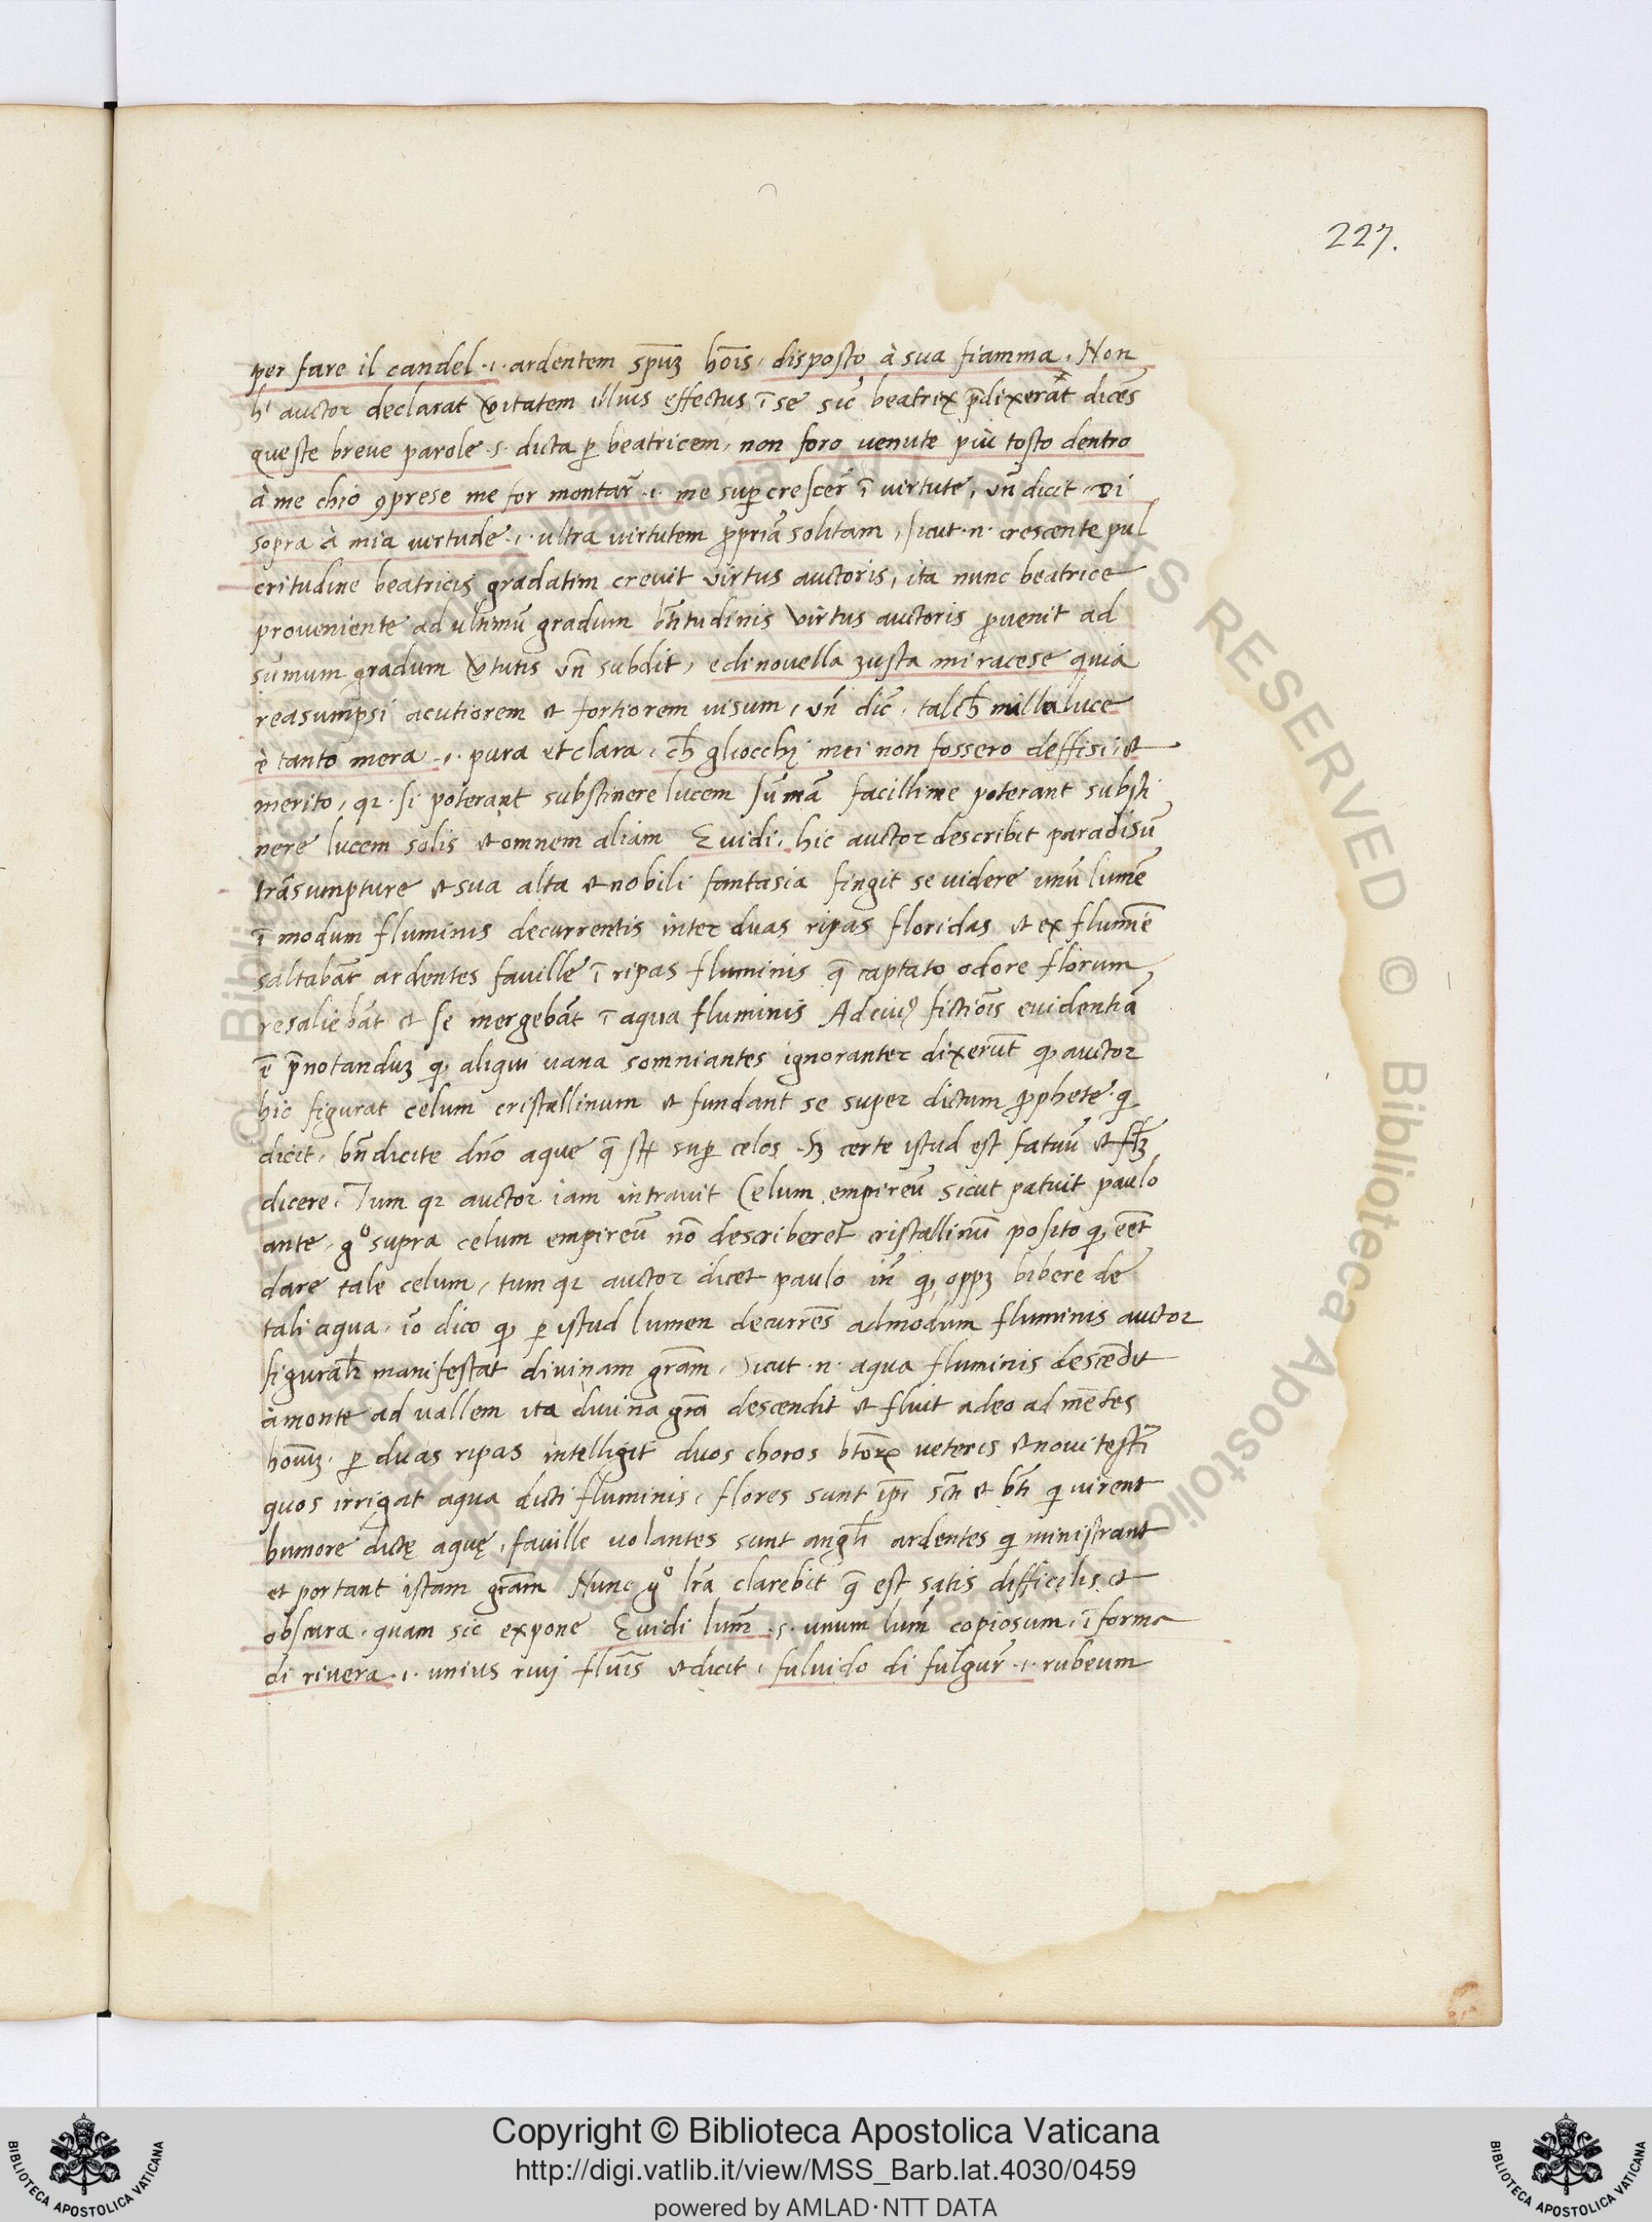 227.
per fare il candel .i. ardentem spūz hoīs, disposto à sua fiamma. Non
hⁱ auctor declarat v̄itatem illius effectus ī se sic̄ beatrix p̄dixerāt dicēs
queste breue parole .s. dicta ꝑ beatricem, non foro uenute più tosto dentro
à me chio ꝯprese me for montar̄ .i. me suꝑcrescer̄ ī virtute, vn̄ dicit, Di
sopra à mia uertude .i. ultra uirtutem ꝓpriā solitam, sicut .n. crescente pul
critudine beatricis gradatim creuit virtus auctoris, ita nunc beatrice
proueniente ad ultimū gradum bt̄itudinis virtus auctoris ꝓuenit ad
sūmum gradum v̄tutis vn̄ subdit, e di nouella zusta mi racese quia
reasumpsi acutiorem et fortiorem uisum, vn̄ dic̄, talch̄ nulla luce
è tanto mera .i. pura et clara, ch̄ gliocchj mei non fossero deffisi, et
merito, qꝛ si poterant substinere lucem sūmā facillime poterant substi
nere lucem solis et omnem aliam E uidi, hic auctor describit paradisū
trāsumpture et sua alta et nobili fantasia fingit se uidere unū lumē
ī modum fluminis decurrentis inter duas ripas floridas et ex flumīe
saltabāt ardentes fauille ī ripas fluminis q̄ captato odore florum
resaliebāt et se mergebāt ī aqua fluminis Ad cuiꝰ fictiōis euidentiā
ē p̄notanduz ꝙ aliqui uana somniantes ignoranter dixerūt ꝙ auctor
hic figurat celum cristallinum et fundant se super dictum ꝓphete qi
dicit, bn̄dicite dn̄o aque q̄ st̄ suꝑ celos sz certe istud est fatuū et flz̄
dicere. Tum qꝛ auctor iam intrauit Celum empireū sicut patuit paulo
ante, gº supra celum empireū nō describeret cristallinū posito ꝙ eēt
dare tale celum, tum qꝛ auctor dicet paulo in̄ ꝙ oppz bibere de
tali aqua. iō dico ꝙ ꝑ istud lumen decurrēs admodum fluminis auctor
figuralr̄ manifestat diuinam grām, Sicut .n. aqua fluminis descēdit
à monte ad uallem ita diuina grā descendit et fluit adeo ad mētes
homīuz. ꝑ duas ripas intelligit duos choros btōrꝝ ueteris et noui testī
quos irrigat aqua dicti fluminis, flores sunt ip̄i sc̄ti et bt̄i qi uirent
humore dictę aquę, fauille uolantes sunt angl̄i ardentes qi ministrant
et portant istam grām Nunc gº lr̄a clarebit q̄ est satis difficilis et
obscura, quam sic expone E uidi lum̄ .s. unum lum̄ copiosum, ī forma
di riuera .i. unius riuj fluīs et dicit, fuluido di fulgur̄ .i. rubeum
Copyright © Biblioteca Apostolica Vaticana
http://digi.vatlib.it/view/MSS_Barb.lat.4030/0459
powered by AMLAD·NTT DATA